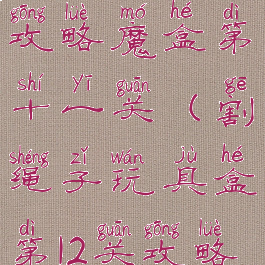 gōng lüè mó hé dì
攻略魔盒第
shí yī guān gē
十一关（割
shéng zǐ wán jù hé
绳子玩具盒
dì guān gōng lüè
第12关攻略